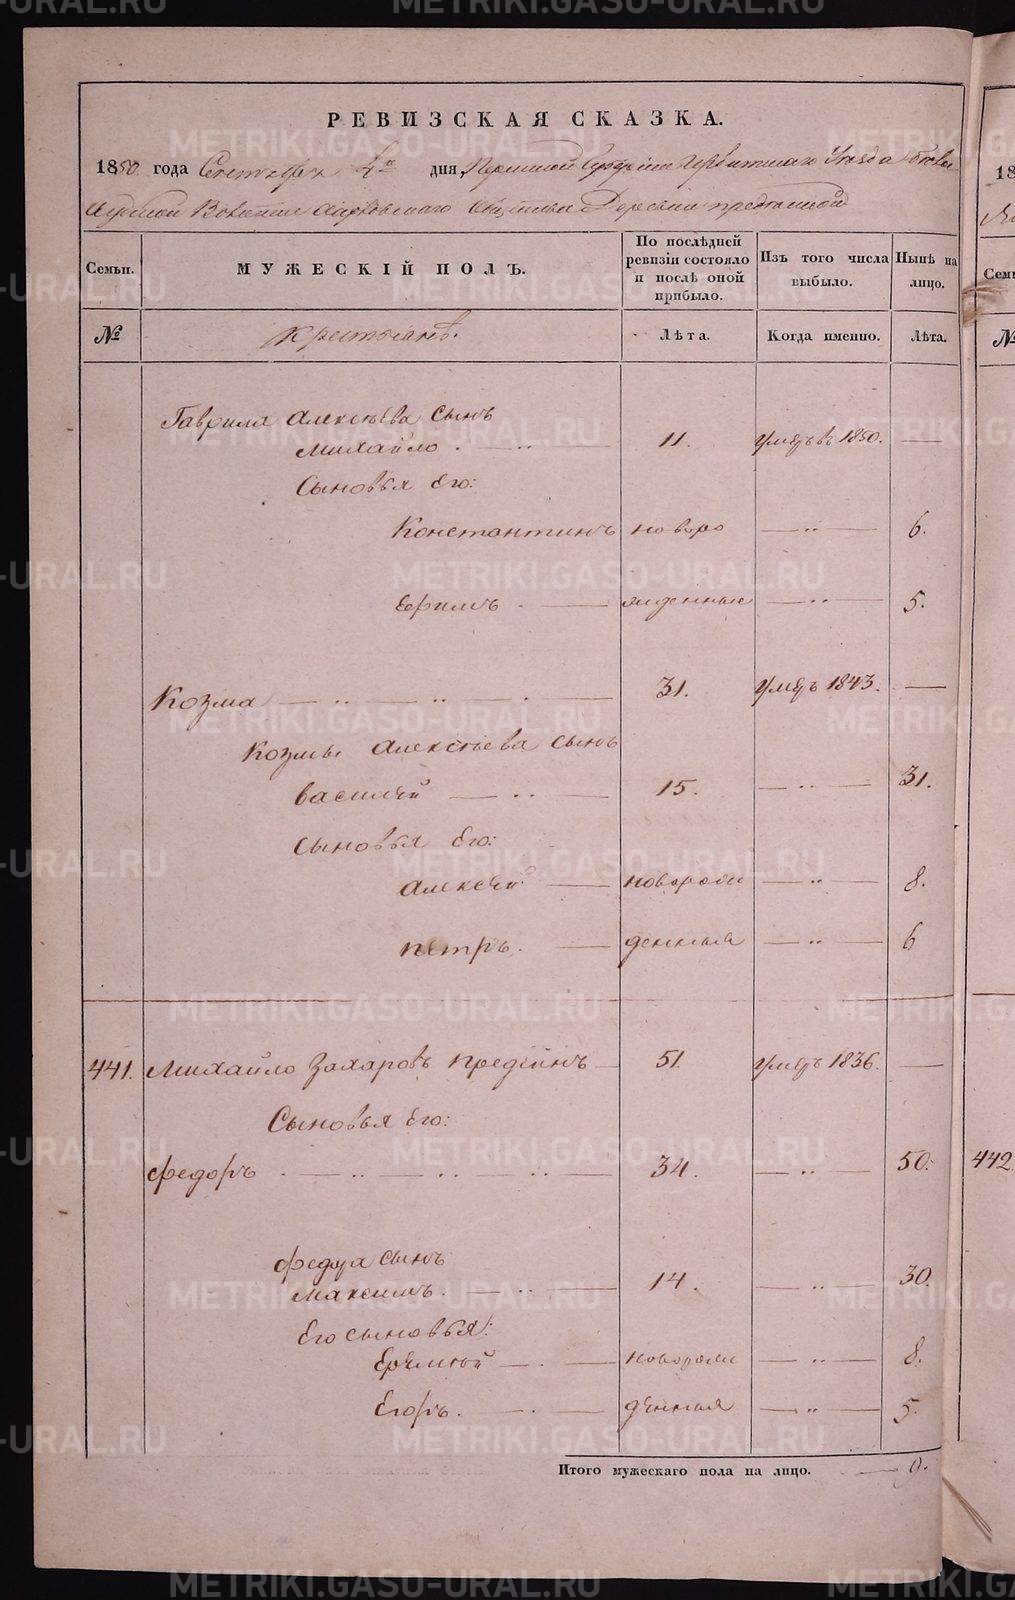 РЕВИЗСКАЯ СКАЗКА.
1850 года Сентября дня, Пермской Губернии Уезда
Волости Селенья Деревни
Семьи.
МУЖЕСКІЙ ПОЛЪ.
По послѣдней ревизіи состояло и послѣ оной прибыло.
Изъ того числа выбыло.
Нынѣ на лицо.
№
Крестьянъ.
Лѣта.
Когда именно.
Лѣта.
Гаврила Алексѣева сынъ
Михайло 11. умеръ въ 1850. —
Сыновья Его:
Константинъ новоро — „ — 6.
Ефимъ жденные — „ — 5.
Козма 31. умеръ 1843. —
Козмы Алексѣева сынъ
Василей 15. — „ — 31.
Сыновья Его:
Алексѣй новорож — „ — 8.
Петръ. денныя — „ — 6
441. Михайло Захаровъ 51. умеръ 1836. —
Сыновья Его:
Федоръ 34. — „ — 50.
442
Федора сынъ
Максимъ. 14. — „ — 30.
Его сыновья:
Еремѣй новорож — „ — 8.
Егоръ. денныя — „ — 5.
Итого мужескаго пола на лицо. — 9.
METRIKI.GASO-URAL.RU